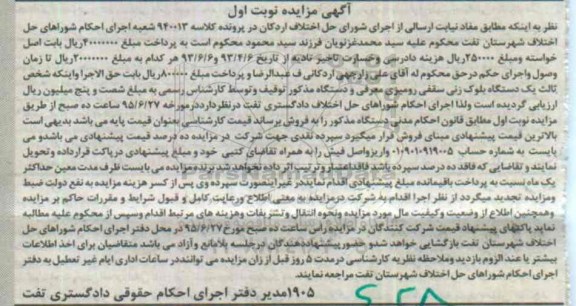 آگهی مزایده نوبت اول
نظر به اینکه مطابق مفاد نیابت ارسالی از اجرای شورای حل اختلاف اردکان در پرونده کلاسه ۹۴۰۰۱۳ شعبه اجرای احکام شوراهای حل
اختلاف شهرستان تفت محکوم علیه سید محمدغزنویان فرزند سید محمود محکوم است به پرداخت مبلغ ۴۰۰۰۰۰۰۰ریال بابت اصل
خواسته ومبلغ ۲۵۰۰۰۰ریال هزینه دادرسی و خسارت تاخیر تادیه از تاریخ ۹۳/۴/۶ و۹۳/۶/۶ هر کدام به مبلغ ۲۰۰۰۰۰۰۰ریال تا زمان
وصول واجرای حکم درحق محکوم له آقای علی زارچهی اردکانی ف عبدالرضا و پرداخت مبلغ ۸۰۰۰۰۰ریال بابت حق الاجرا واینکه شخص
ثالث یک دستگاه بلوک زنی سقفی رومیزی معرفی و دستگاه مذکور توقیف وتوسط کارشناس رسمی به مبلغ شصت و پنج میلیون ریال
ارزیابی گردیده است ولذا اجرای احکام شوراهای حل اختلاف دادگستری تفت درنظرداردمورخه ۹۵/۶/۲۷ ساعت ده صبح از طریق
مزایده نوبت اول مطابق قانون احکام مدنی دستگاه مذکور را به فروش برساند قیمت کارشناسی بعنوان قیمت پایه می باشد بدیهی است
بالاترین قیمت پیشنهادی مبنای فروش قرار میگیرد سپرده نقدی جهت شرکت در مزایده ده درصد قیمت پیشنهادی می باشدو می
بایست به شماره حساب واریزواصل فیش را به همراه تقاضای کتبی خود و مبلغ پیشنهادی درپاکت قرارداده وتحویل
نمایند و تقاضایی که فاقد ده درصد سپرده باشد فاقداعتبار وترتیب اثر داده نخواهد شد برنده مزایده می بایست ظرف مدت معین حداکثر
یک ماه نسبت به پرداخت باقیمانده مبلغ پیشنهادی اقدام نمایددر غیراینصورت سپرده وی پس از کسر هزینه مزایده به نفع دولت ضبط
ومزایده تجدید میگردد از نظر اجرا اقدام به شرکت درمزایده به معنی اطلاع ورعایت کامل و قبول شرایط و مقررات حاکم بر مزایده
وهمچنین اطلاع از وضعیت وکیفیت مال مورد مزایده ونحوه انتقال وتشریفات وهزینه های مرتبط اقدام وسپس از محکوم علیه مطالبه
نماید پاکتهای پیشنهاد قیمت شرکت کنندگان در مزایده راس ساعت ده صبح مورخ ۹۵/۶/۲۷ در محل دفتر اجرای احکام شوراهای حل
اختلاف شهرستان تفت بازگشایی خواهد شدو حضور پیشنهاددهندگان درجلسه بلامانع وآزاد می باشد متقاضیان برای اخذ اطلاعات
بیشتر یا عند الزوم بازدید وملاحظه نظریه کارشناسی درمدت ۵ روز قبل از زمان مزایده می توانند در ساعات اداری ایام غیر تعطیل به دفتر
اجرای احکام شوراهای حل اختلاف شهرستان تفت مراجعه نمایند.
۱۹۰۵مدیر دفتر اجرای احکام حقوقی دادگستری تفت